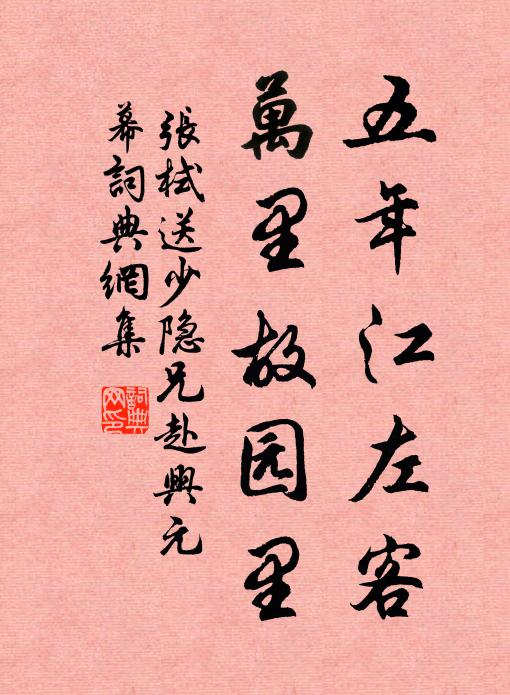 五年江左客
萬里故园里
張栻送少隐兄赴興元
幕詞典網集
詞典网印